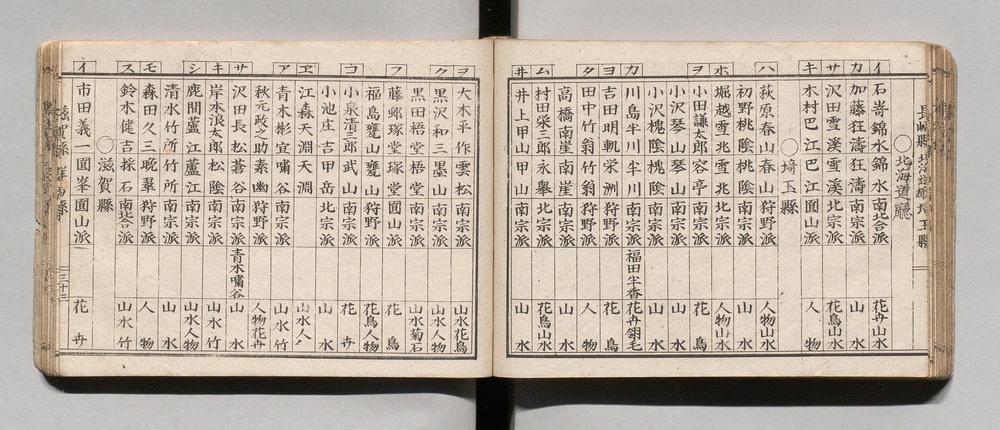 長崎縣 北海道廳 埼玉縣
○北海道廳
イ 石嵜錦水 錦水 南北合派 花卉山水
カ 加藤狂濤 狂濤 南宗派 山水
サ 沢田雪溪 雪溪 北宗派 花鳥山水
キ 木村巴江 巴江 圓山派 人物
○埼玉縣
ハ 荻原春山 春山 狩野派 人物山水
初野桃隂 桃隂 南宗派 山水
ホ 堀越雪兆 雪兆 南宗派 人物山水
ヲ 小田謙太郎 容亭 南宗派 花鳥
小沢琴山 琴山 南宗派 山水
小沢槐隂 槐隂 南宗派 山水
カ 川島半川 半川 南宗派 福田半香 花卉翎毛
ヨ 吉田明 軏栄洲 狩野派 花鳥
タ 田中竹翁 竹翁 狩野派 人物
高橋南崖 南崖 南宗派 山水
ム 村田栄三郎 永舉 北宗派 花鳥山水
井 井上甲山 甲山 南宗派 山水
ヲ 大木平作 雲松 南宗派 山水花鳥
ク 黒沢和三 墨山 南宗派 人物山水
黒田梧堂 梧堂 南宗派 山水菊石
フ 藤郷琢堂 琢堂 圓山派 花鳥
福島甕山 甕山 狩野派 花鳥人物
コ 小泉清三郎 武山 南宗派 花卉
小池庄吉 甲岳 北宗派 山水
ヱ 江森天淵 天淵 南宗派 山水人八
ア 青木彬宣 嘯谷 南宗派 山水竹
秋元政之助 素幽 狩野派 人物花卉
サ 沢田長松 蒼谷 南宗派 青木嘯谷 山水
キ 岸本浪太郎 松隂 南宗派 山水竹
シ 鹿間蘆江 蘆江 南宗派 山水人物
清水竹所 竹所 南宗派 山水
モ 森田久三 晩翠 狩野派 人物
ス 鈴木健吉 採石 南北合派 山水竹
○滋賀縣
イ 市田義一 圓峯 圓山派 花卉
滋賀縣
三十三